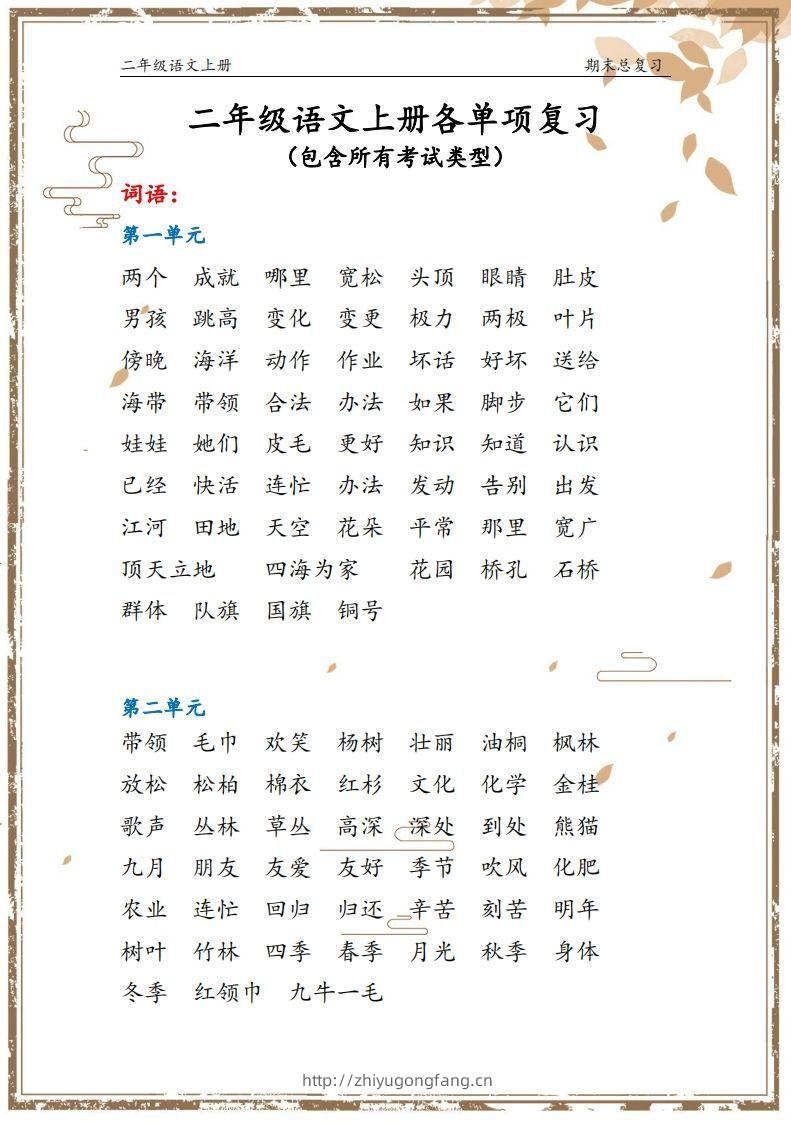 二年级语文上册 期末总复习
二年级语文上册各单项复习
（包含所有考试类型）
词语：
第一单元
两个 成就 哪里 宽松 头顶 眼睛 肚皮
男孩 跳高 变化 变更 极力 两极 叶片
傍晚 海洋 动作 作业 坏话 好坏 送给
海带 带领 合法 办法 如果 脚步 它们
娃娃 她们 皮毛 更好 知识 知道 认识
已经 快活 连忙 办法 发动 告别 出发
江河 田地 天空 花朵 平常 那里 宽广
顶天立地 四海为家 花园 桥孔 石桥
群体 队旗 国旗 铜号
第二单元
带领 毛巾 欢笑 杨树 壮丽 油桐 枫林
放松 松柏 棉衣 红杉 文化 化学 金桂
歌声 丛林 草丛 高深 深处 到处 熊猫
九月 朋友 友爱 友好 季节 吹风 化肥
农业 连忙 回归 归还 辛苦 刻苦 明年
树叶 竹林 四季 春季 月光 秋季 身体
冬季 红领巾 九牛一毛
http://zhiyugongfang.cn